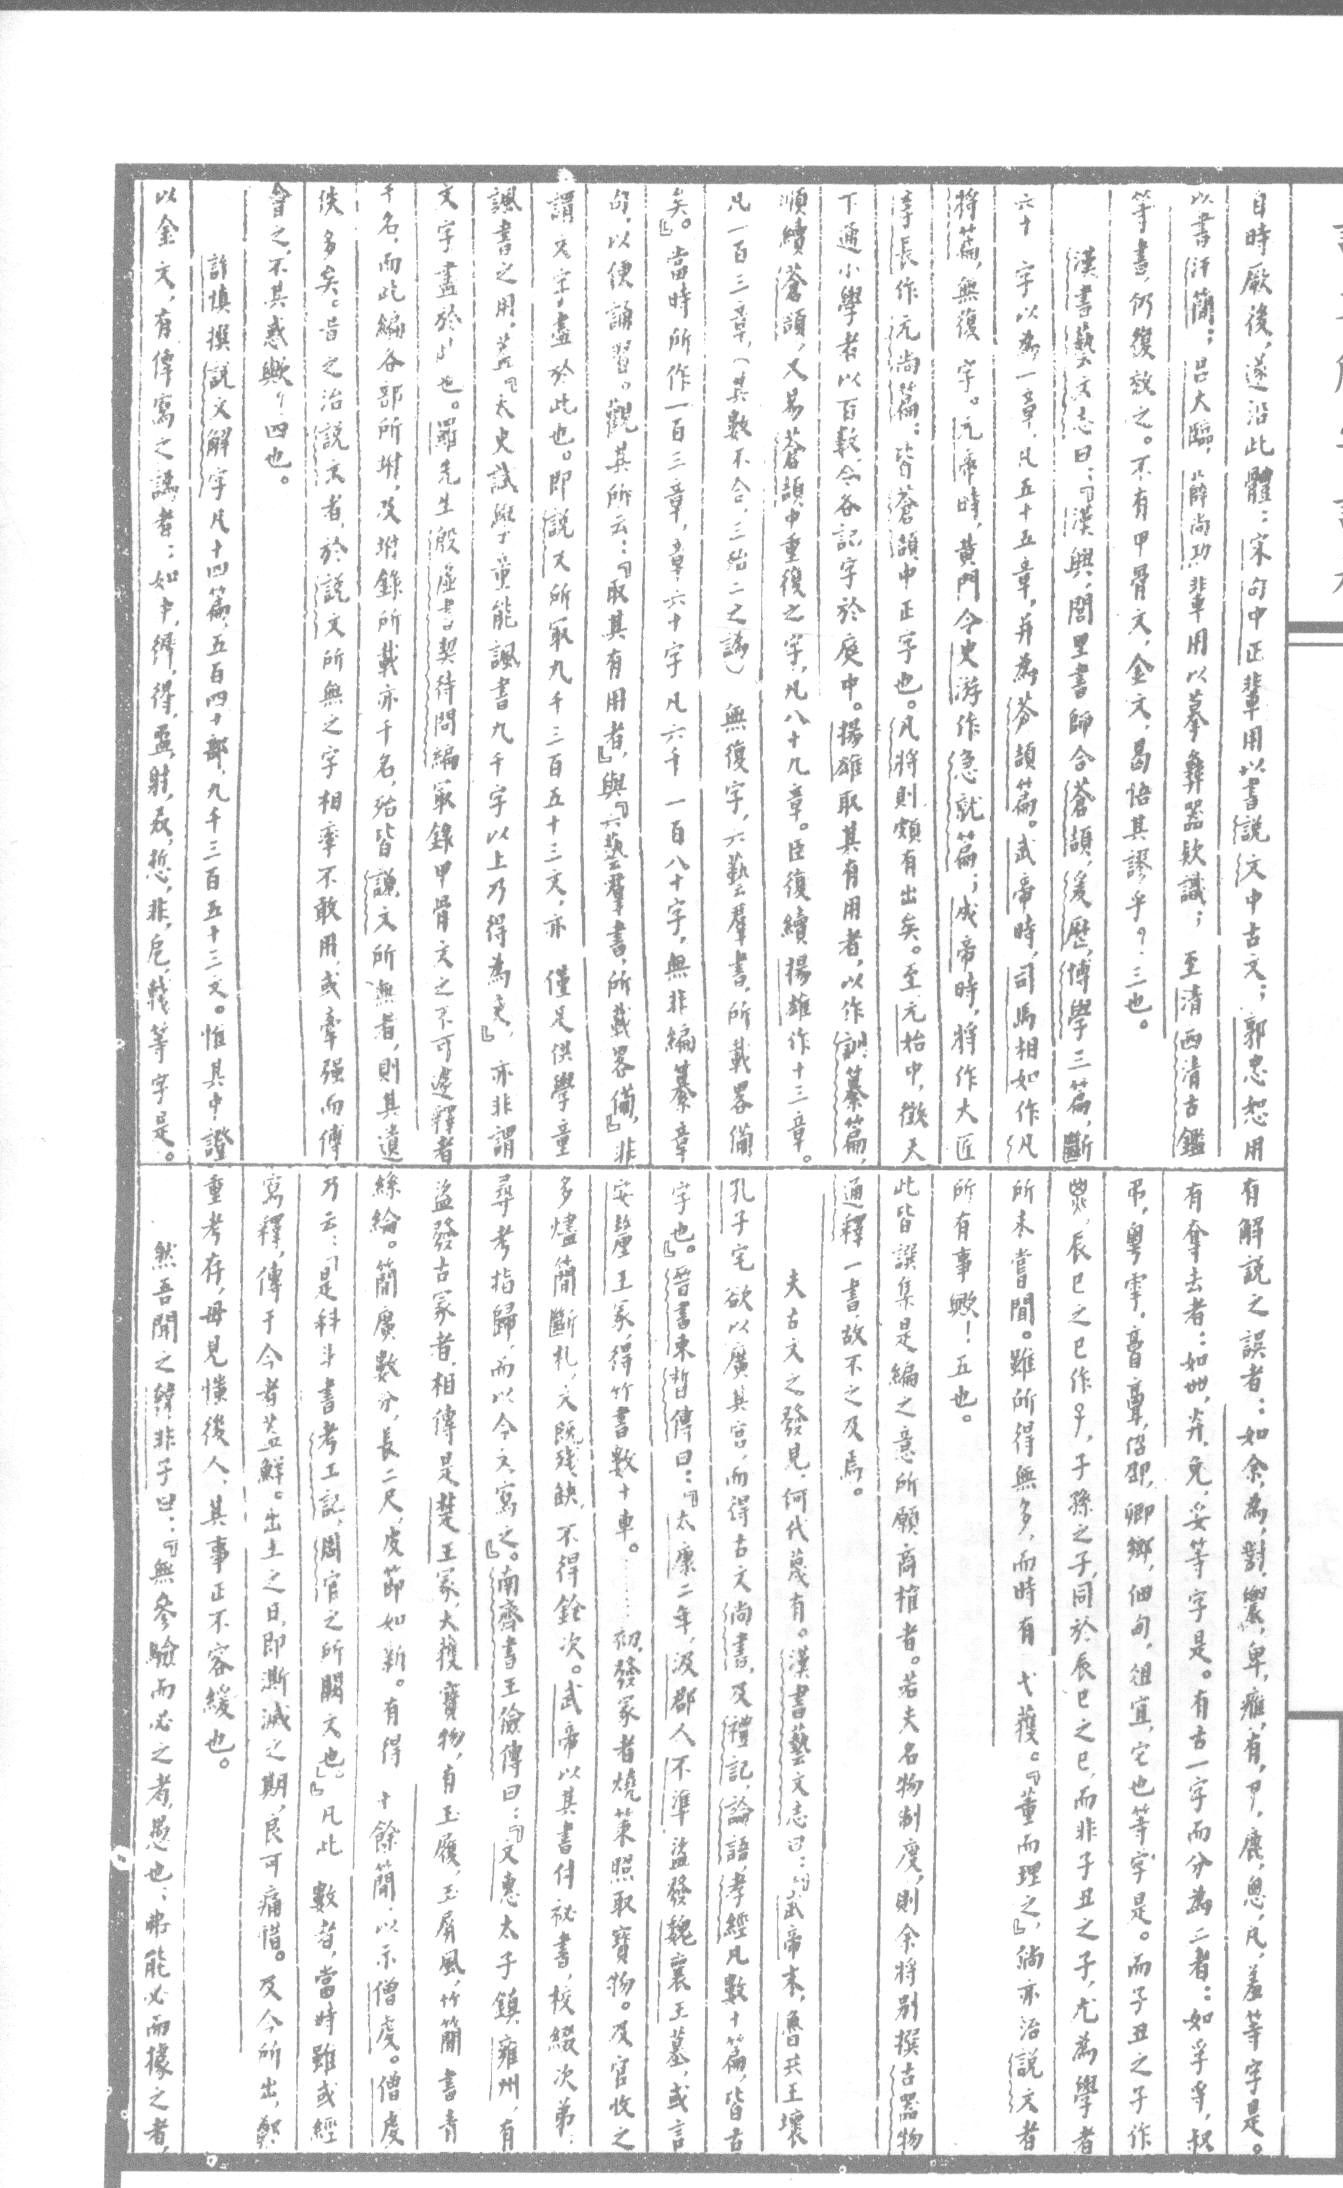 自時厥後，遂沿此體：宋句中正輩用以書說文中古文；郭忠恕用
以書汗簡；呂大臨，薛尚功輩用以摹彝器欵識；至清西清古鑑
等書，仍復效之。不有甲骨文，金文，曷悟其謬乎？三也。
漢書藝文志曰：『漢興，閭里書師合蒼頡，爰歷，博學三篇，斷
六十字以為一章，凡五十五章，并為蒼頡篇。武帝時，司馬相如作凡
將篇，無復字。元帝時，黃門令史游作急就篇；成帝時，將作大匠
李長作元尚篇：皆蒼頡中正字也。凡將則頗有出矣。至元始中，徵天
下通小學者以百數，令各記字於庭中。揚雄取其有用者，以作訓纂篇，
順續蒼頡，又易蒼頡中重復之字，凡八十九章。臣復續揚雄作十三章。
凡一百三章，（其數不合，三殆二之譌）無復字，六藝羣書，所載畧備
矣。』當時所作一百三章，章六十字凡六千一百八十字，無非編纂章
句，以便誦習。觀其所云：『取其有用者，』與『六藝羣書，所載畧備，』非
謂文字盡於此也。即說文所冣九千三百五十三文，亦僅足供學童
諷書之用，蓋『太史試學童能諷書九千字以上乃得為史，』亦非謂
文字盡於此也。羅先生殷虛書契待問編冣錄甲骨文之不可遽釋者
千名，而此編各部所坿，及坿錄所載亦千名，殆皆說文所無者，則其遺
佚多矣。昔之治說文者，於說文所無之字相率不敢用，或牽强而傅
會之，不其惑歟？四也。
許慎撰說文解字凡十四篇，五百四十部，九千三百五十三文。惟其中證
以金文，有傳寫之譌者：如中，得，盄，射，反，悊，非，戹，等字是。
有解說之誤者：如余，為，對，卑，有，鹿，凡，羞等字是。
有奪去者：如卅，弅，免，妥等字是。有古一字而分為二者：如孚寽，叔
弔，粵雩，卿鄉，佃甸，俎宜，它也等字是。而子丑之子作
，辰巳之巳作，子孫之子，同於辰巳之巳，而非子丑之子，尤為學者
所未嘗聞。雖所得無多，而時有弋獲。『董而理之，』倘亦治說文者
所有事歟！五也。
此皆譔集是編之意所願商榷者。若夫名物制度，則余將別撰古器物
通釋一書，故不之及焉。
夫古文之發見，何代蔑有。漢書藝文志曰：『武帝末，魯共王壞
孔子宅欲以廣其宮，而得古文尚書，及禮記，論語，孝經凡數十篇，皆古
字也。』晉書束晳傳曰：『太康二年，汲郡人不準盜發魏襄王墓，或言
安釐王冢，得竹書數十車。……初，發冢者燒策照取寶物。及官收之
多燼簡斷札，文既殘缺，不得銓次。武帝以其書付祕書，校綴次第，
尋考指歸，而以今文寫之。』南齊書王儉傳曰：『文惠太子鎮雍州，有
盜發古冢者，相傳是楚王冢，大獲寶物，有玉履，玉屏風，竹簡書青
絲綸。簡廣數分，長二尺，皮節如新。有得十餘簡，以示僧虔。僧虔
乃云：『是科斗書考工記，周官之所闕文也。』』凡此數者，當時雖或經
寫釋，傳于今者蓋鮮。出土之日，即澌滅之期，良可痛惜。及今所出，鄭
重考存，毋見慬後人，其事正不容緩也。
然吾聞之韓非子曰：『無參驗而必之者，愚也；弗能必而據之者，